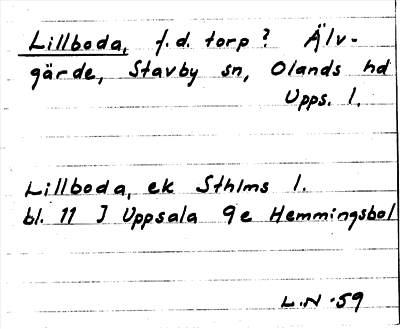 Lillboda, f.d. torp? Älv-
gärde, Stavby sn, Olands hd
Upps. l.
Lillboda, ek Sthlms l.
bl. 11 J Uppsala 9e Hemmingsbol
L.N -59